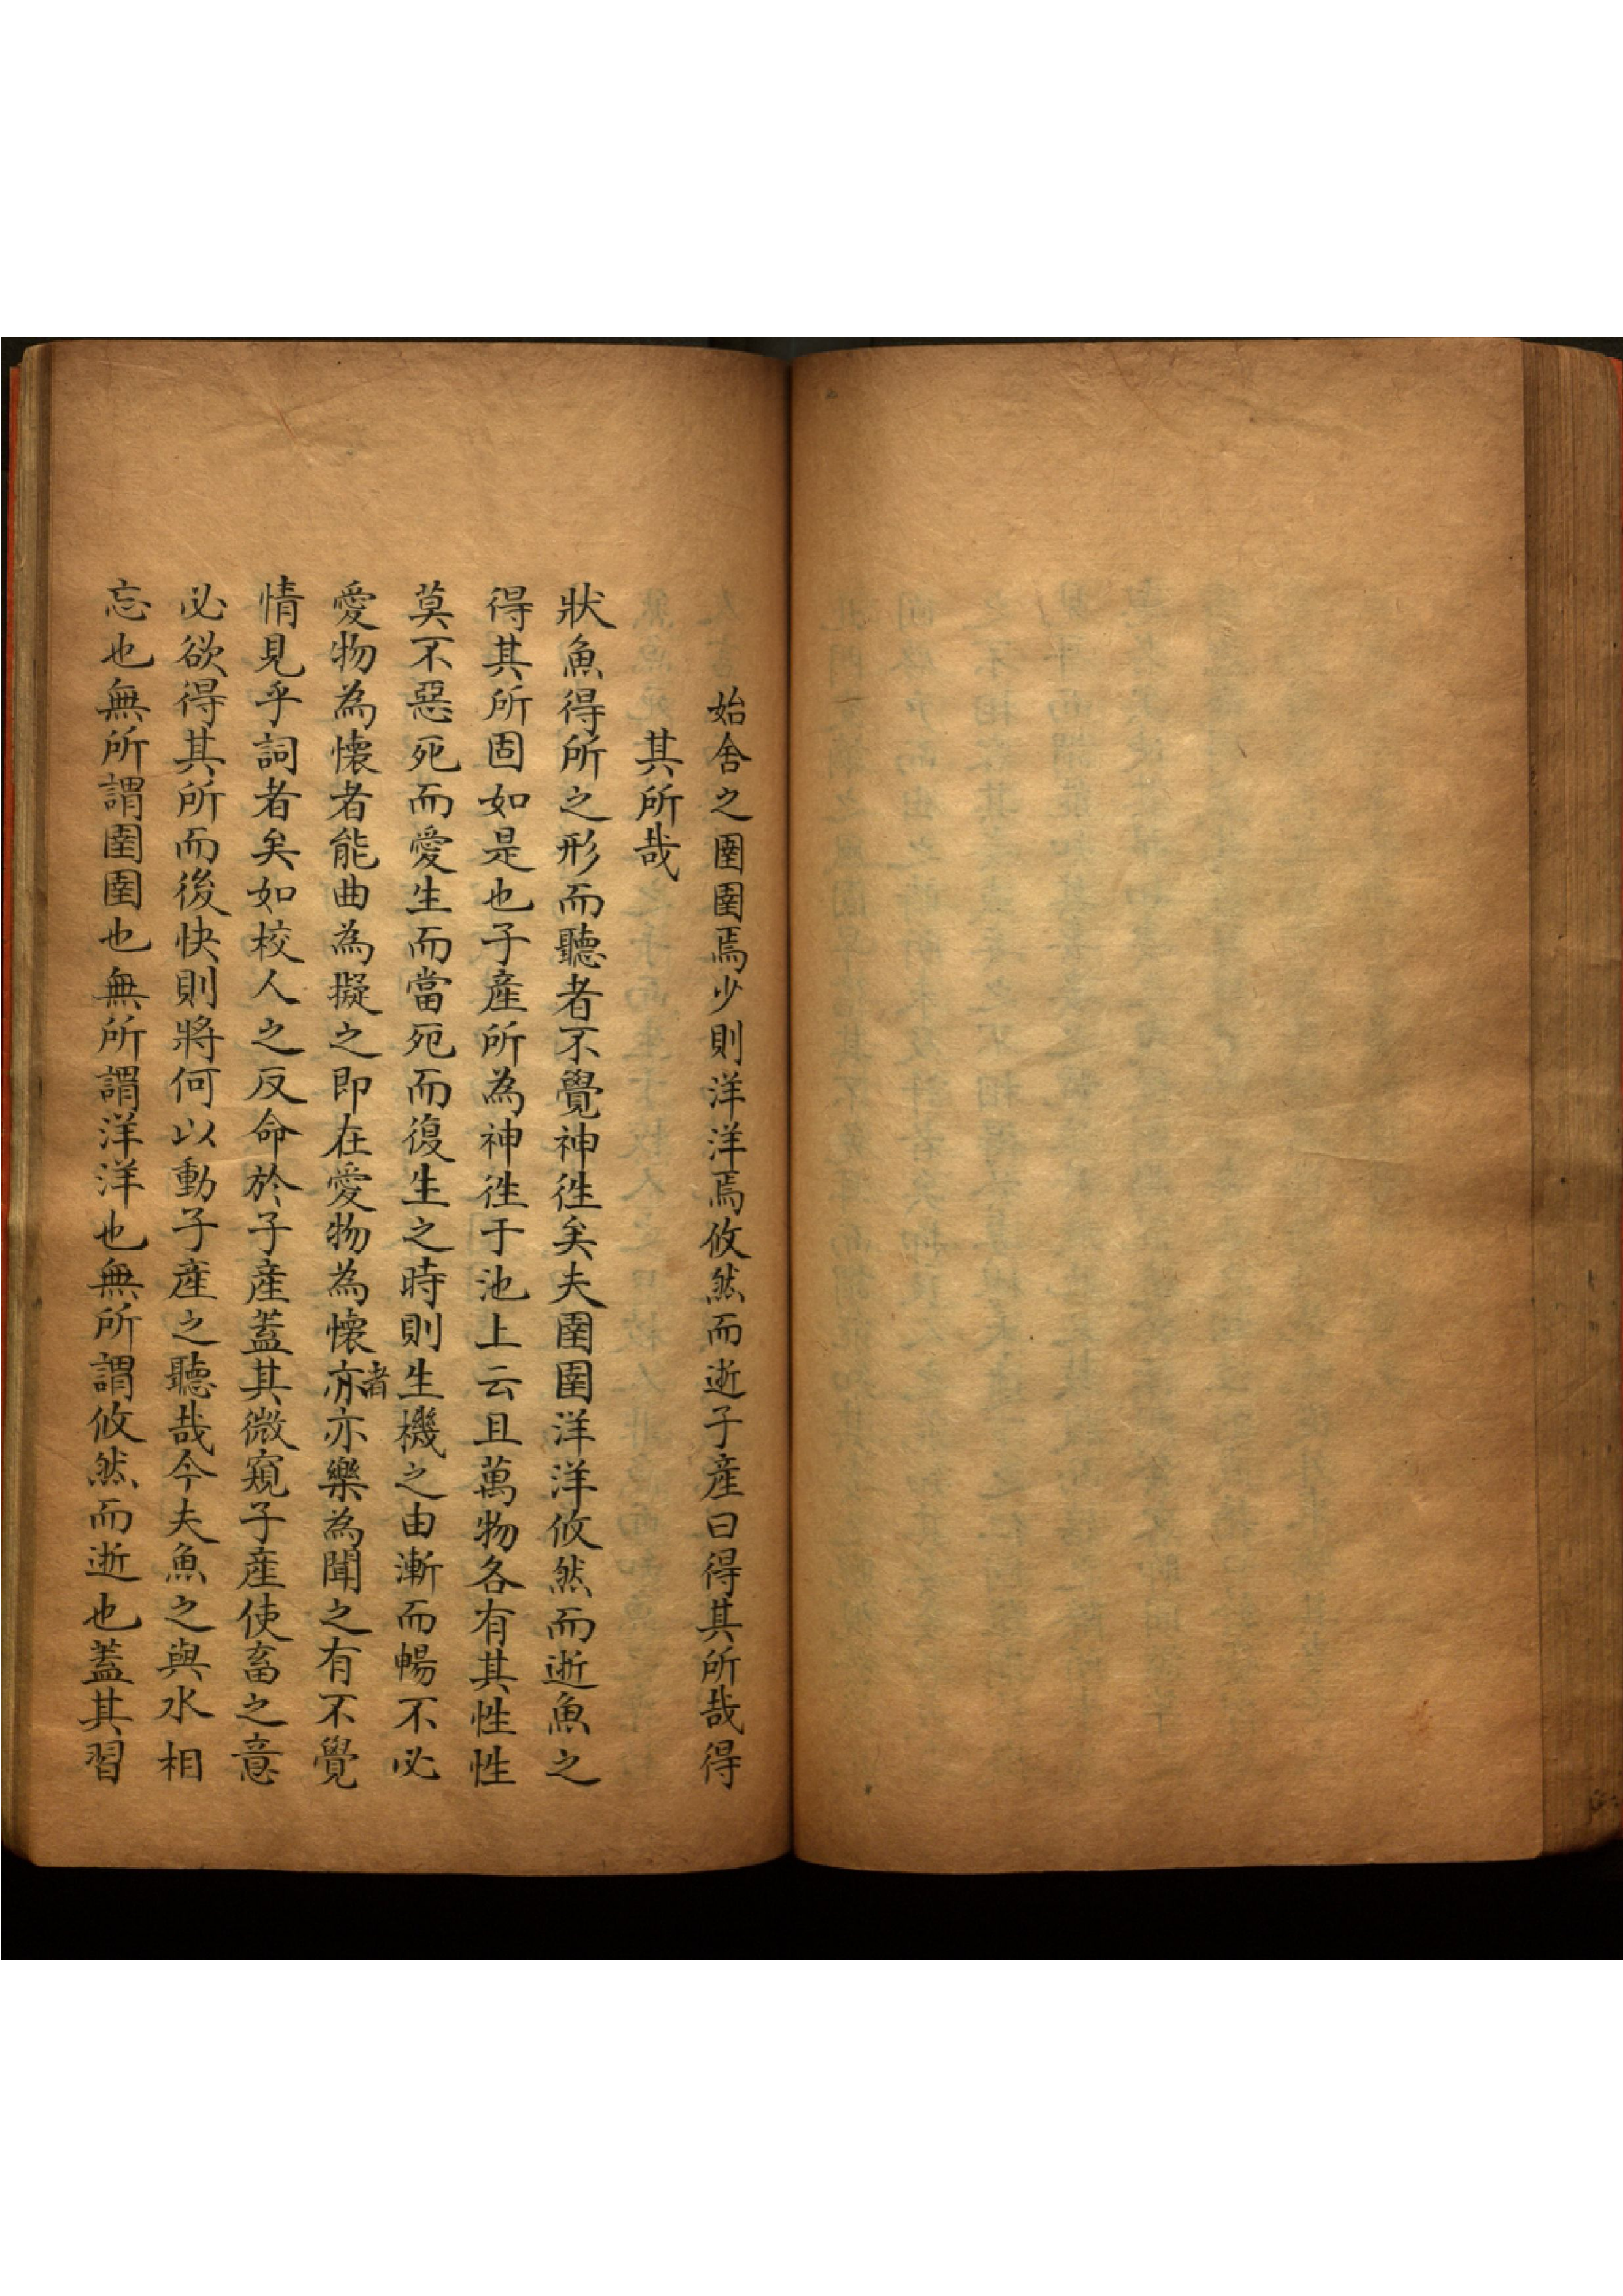 始舍之圉圉焉少則洋洋焉攸然而逝子產曰得其所哉得
其所哉
狀魚得所之形而聽者不覺神徃矣夫圉圉洋洋攸然而逝魚之
得其所固如是也子產所為神徃于池上云且萬物各有其性性
莫不惡死而愛生而當死而復生之時則生機之由漸而暢不必
愛物為懷者能曲為擬之即在愛物為懷亦者亦樂為聞之有不覺
情見乎詞者矣如校人之反命於子產蓋其微窺子產使畜之意
必欲得其所而後快則將何以動子產之聽哉今夫魚之與水相
忘也無所謂圉圉也無所謂洋洋也無所謂攸然而逝也蓋其習